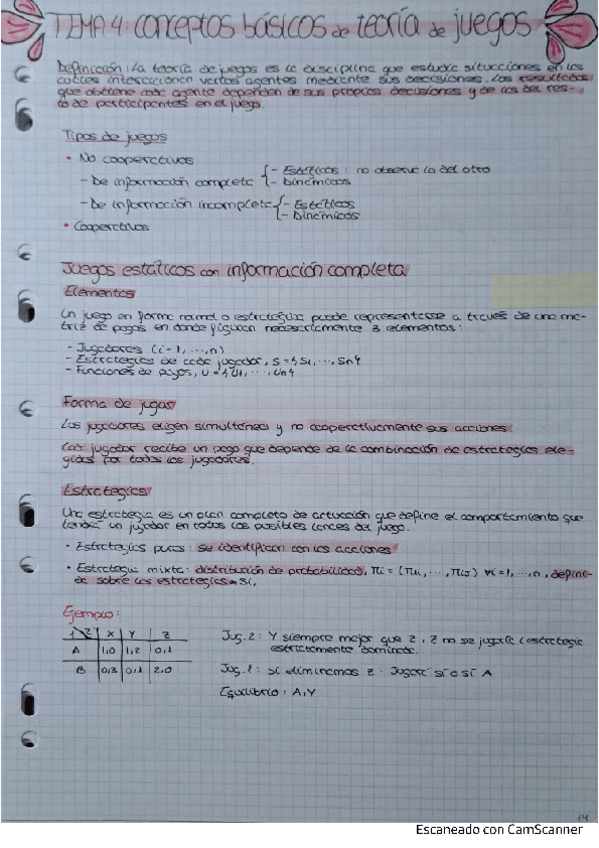 TEMA 4: conceptos básicos de teoría de juegos
Definición: La teoría de juegos es la disciplina que estudia situaciones en las
cuales interaccionan varios agentes mediante sus decisiones. Los resultados
que obtiene cada agente dependen de sus propias decisiones y de las del res-
to de participantes en el juego.
Tipos de juegos
• No cooperativos
- De información completa { - Estáticos: no observa lo del otro
- Dinámicos
- De información incompleta { - Estáticos
- Dinámicos
• Cooperativos
Juegos estáticos con información completa
Elementos
Un juego en forma normal o estratégica puede representarse a través de una ma-
triz de pagos en donde figuran necesariamente 3 elementos:
- Jugadores (i=1, ..., n)
- Estrategias de cada jugador, S = {S1, ..., Sn}
- Funciones de pagos, U = {U1, ..., Un}
Forma de jugar
Los jugadores eligen simultánea y no cooperativamente sus acciones
Cada jugador recibe un pago que depende de la combinación de estrategias ele-
gidas por todos los jugadores.
Estrategias
Una estrategia es un plan completo de actuación que define el comportamiento que
tendrá un jugador en todos los posibles lances del juego.
• Estrategias puras: se identifican con las acciones
• Estrategia mixta: distribución de probabilidad, πi = (πi1, ..., πis) ∀i=1, ..., n, defini-
da sobre las estrategias Si,
Ejemplo:
1 2 X Y Z
A 1,0 1,2 0,1
B 0,3 0,1 2,0
Jug. 2: Y siempre mejor que Z, Z no se jugará (estrategia
estrictamente dominada.
Jug. 1: Si eliminamos Z. Jugará sí o sí A
Equilibrio: A,Y
14
Escaneado con CamScanner